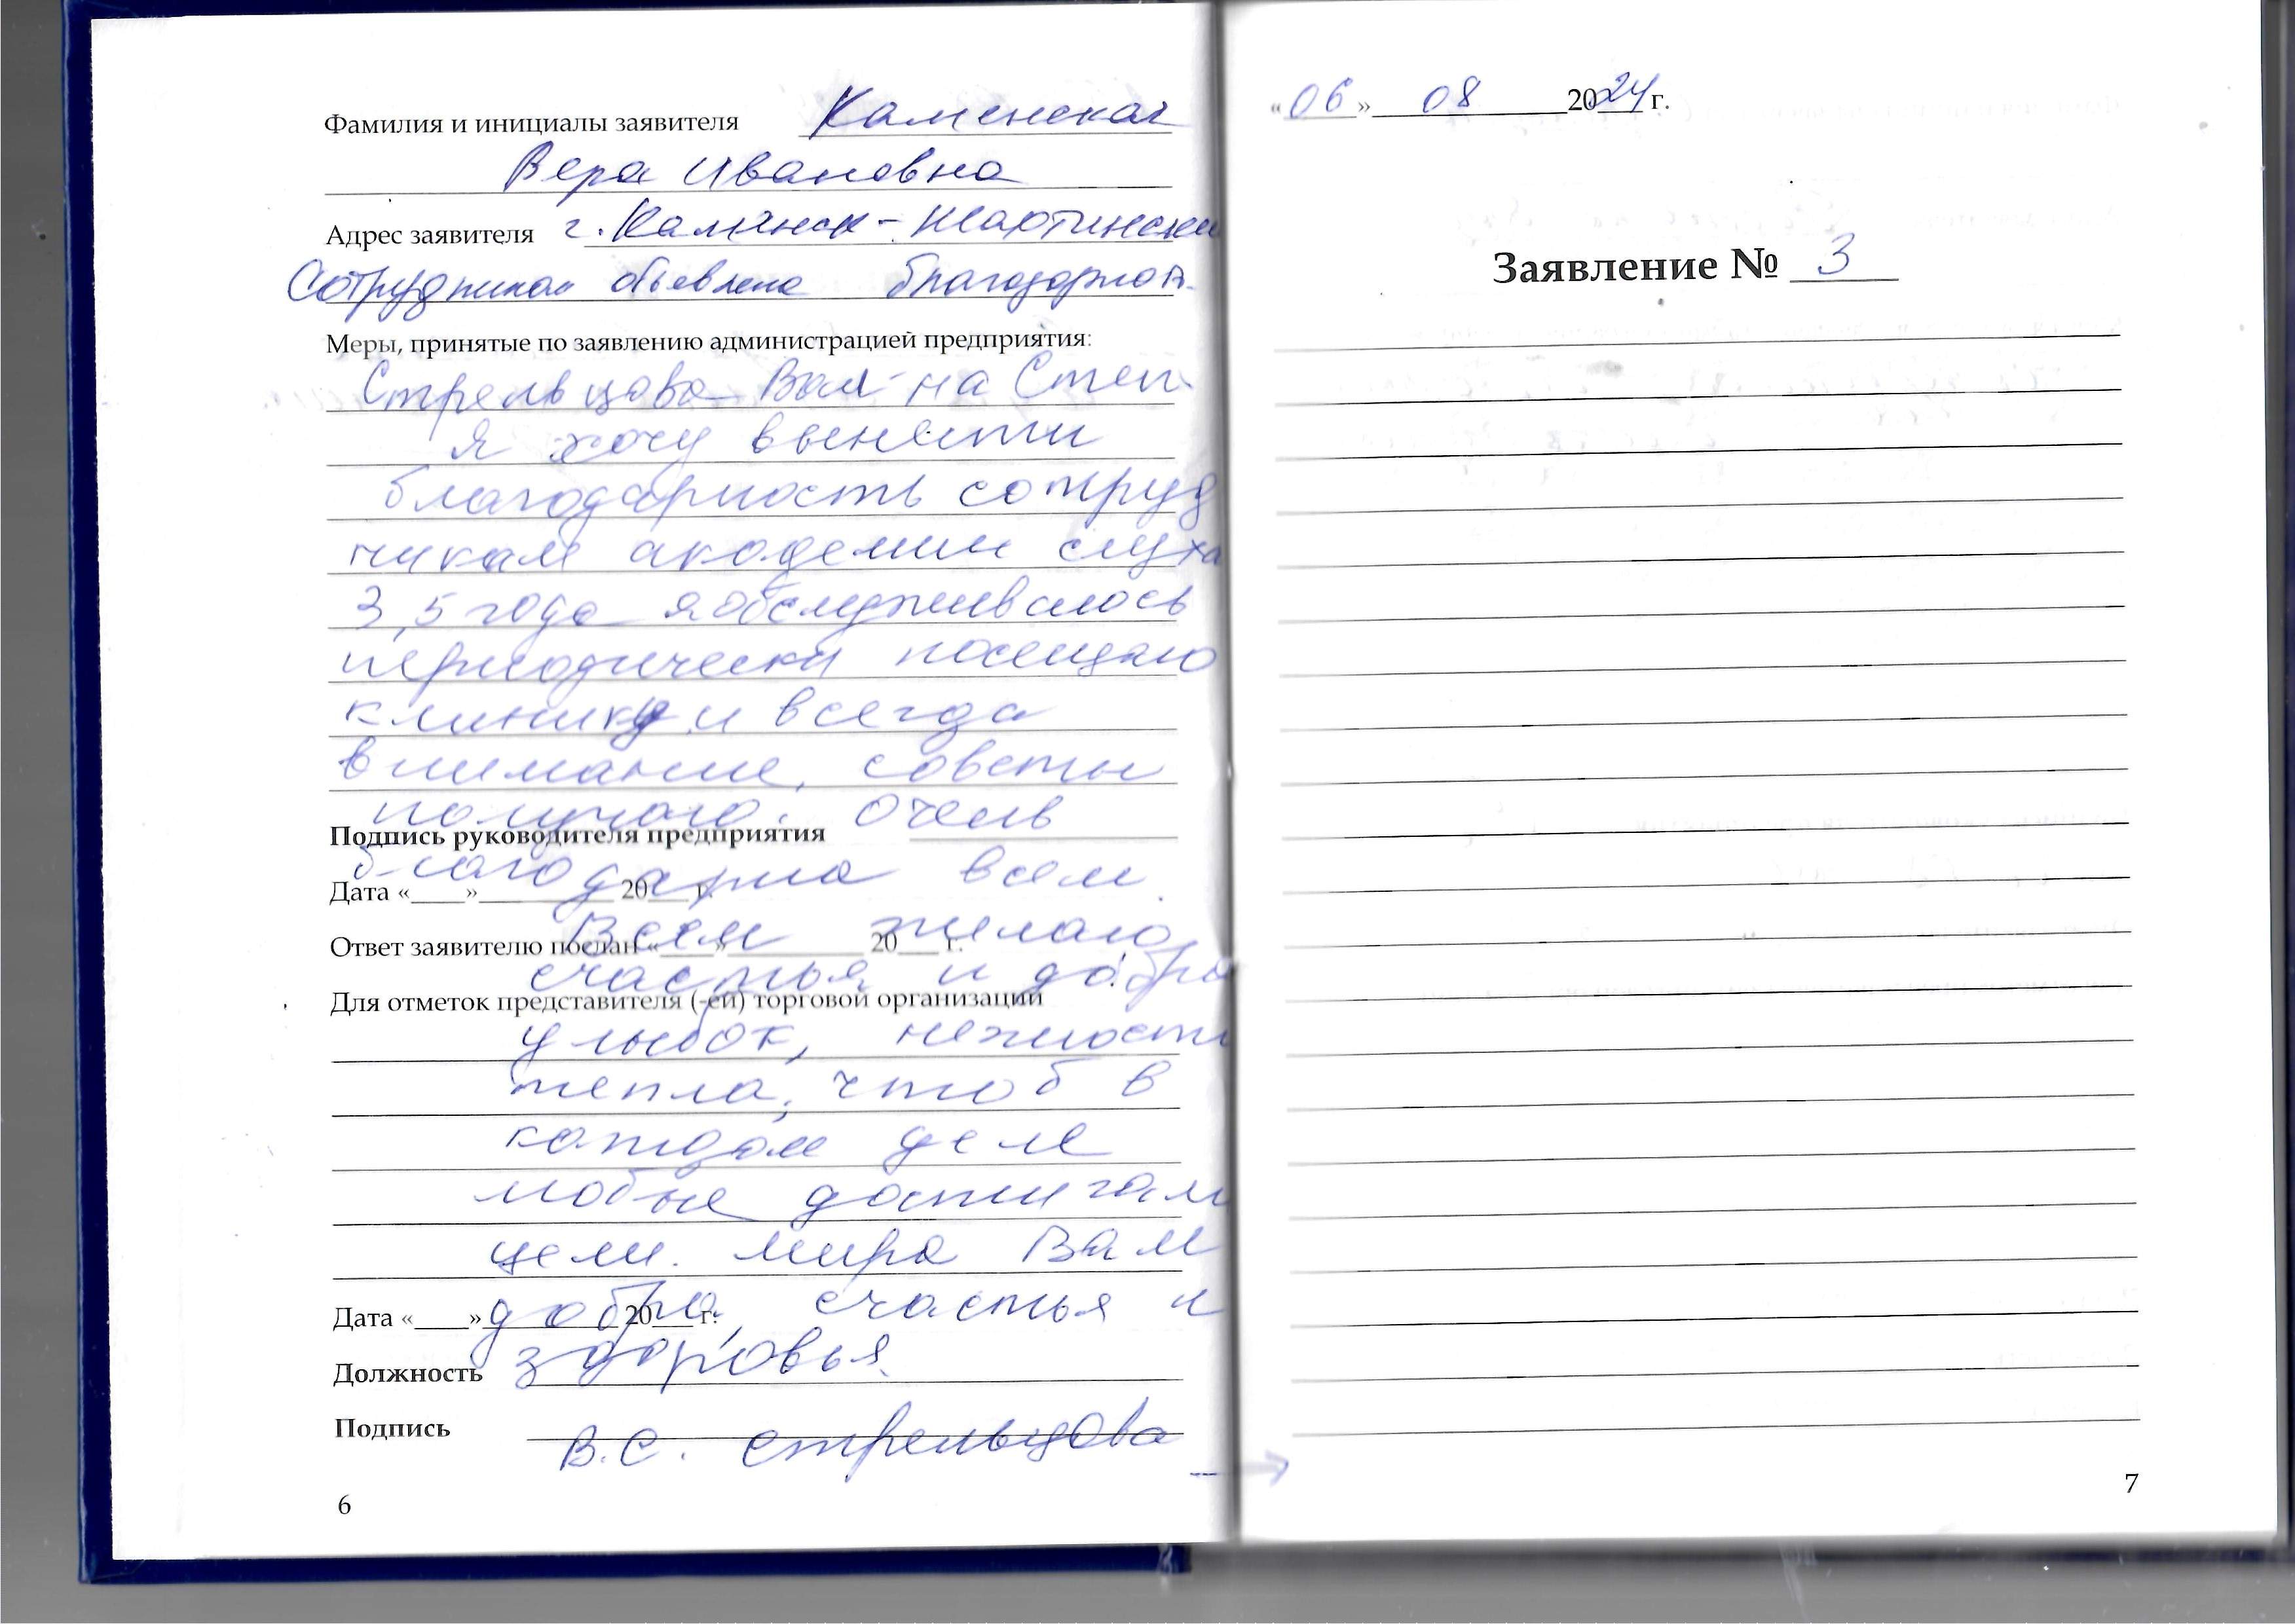 Фамилия и инициалы заявителя Каменская
Вера Ивановна
Адрес заявителя г. Каминск-Шахтински
Сотрудникам объявлена благодарност
Меры, принятые по заявлению администрацией предприятия:
Стрельцова Вал-на Степ.
Я хочу вынести
благодарность сотруд
никам академии слуха
3,5 года я обслуживаюсь
периодически посещаю
клинику и всегда
внимание, советы
получаю. Очень
Подпись руководителя предприятия
благодарна всем.
Дата «____»__________ 20___ г.
Всем желаю
Ответ заявителю послан «____»__________ 20___ г.
счастья и добра
Для отметок представителя (-ей) торговой организации
улыбок, нежности
тепла, чтоб в
каждом деле
любые достигали
цели. Мира Вам
Дата «____»__________ 20___ г.
добра, счастья и
Должность здоровья.
Подпись В.С. Стрельцова
6
«06» 08 2024 г.
Заявление № 3
7